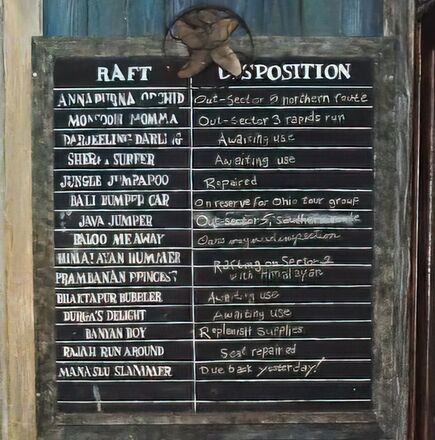 RAFT DISPOSITION
ANNAPURNA ORCHID Out-Sector 5 northern route
MONSOON MOMMA Out-Sector 3 rapids run
DARJEELING DARLING Awaiting use
SHERPA SURFER Awaiting use
JUNGLE JUMPAPOO Repaired
BALI BUMPER CAR On reserve for Ohio tour group
JAVA JUMPER Out-sector 5, southern route
BALOO ME AWAY inspection
HIMALAYAN HUMMER Rafting on Sector 2
PRAMBANAN PRINCESS with Himalayan
BHAKTAPUR BUBBLER Awaiting use
DURGA'S DELIGHT Awaiting use
BANYAN BOY Replenish supplies
RAJAH RUN AROUND Seat repaired
MANASLU SLAMMER Due back yesterday!